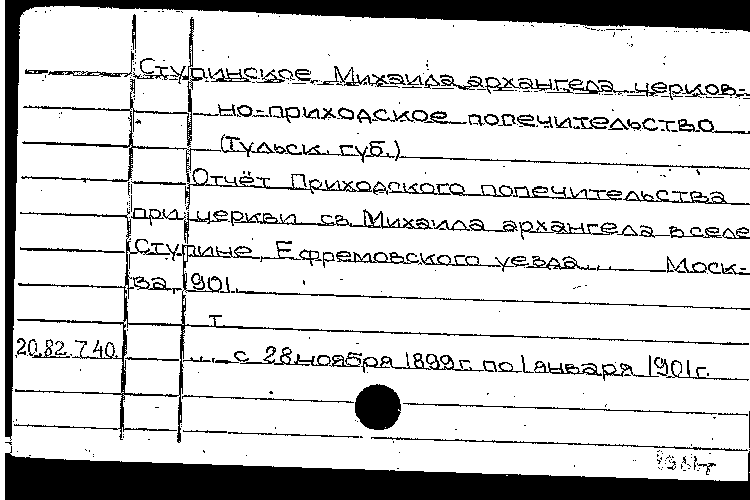 Ступинское Михаила архангела церков-
но-приходское попечительство
(Тульск. губ.)
Отчёт Приходского попечительства
при церкви св. Михаила архангела в селе
Ступине, Ефремовского уезда... Моск-
ва, 1901.
т.
20.82.7.40. ... с 28 ноября 1899 г. по 1 января 1901 г.